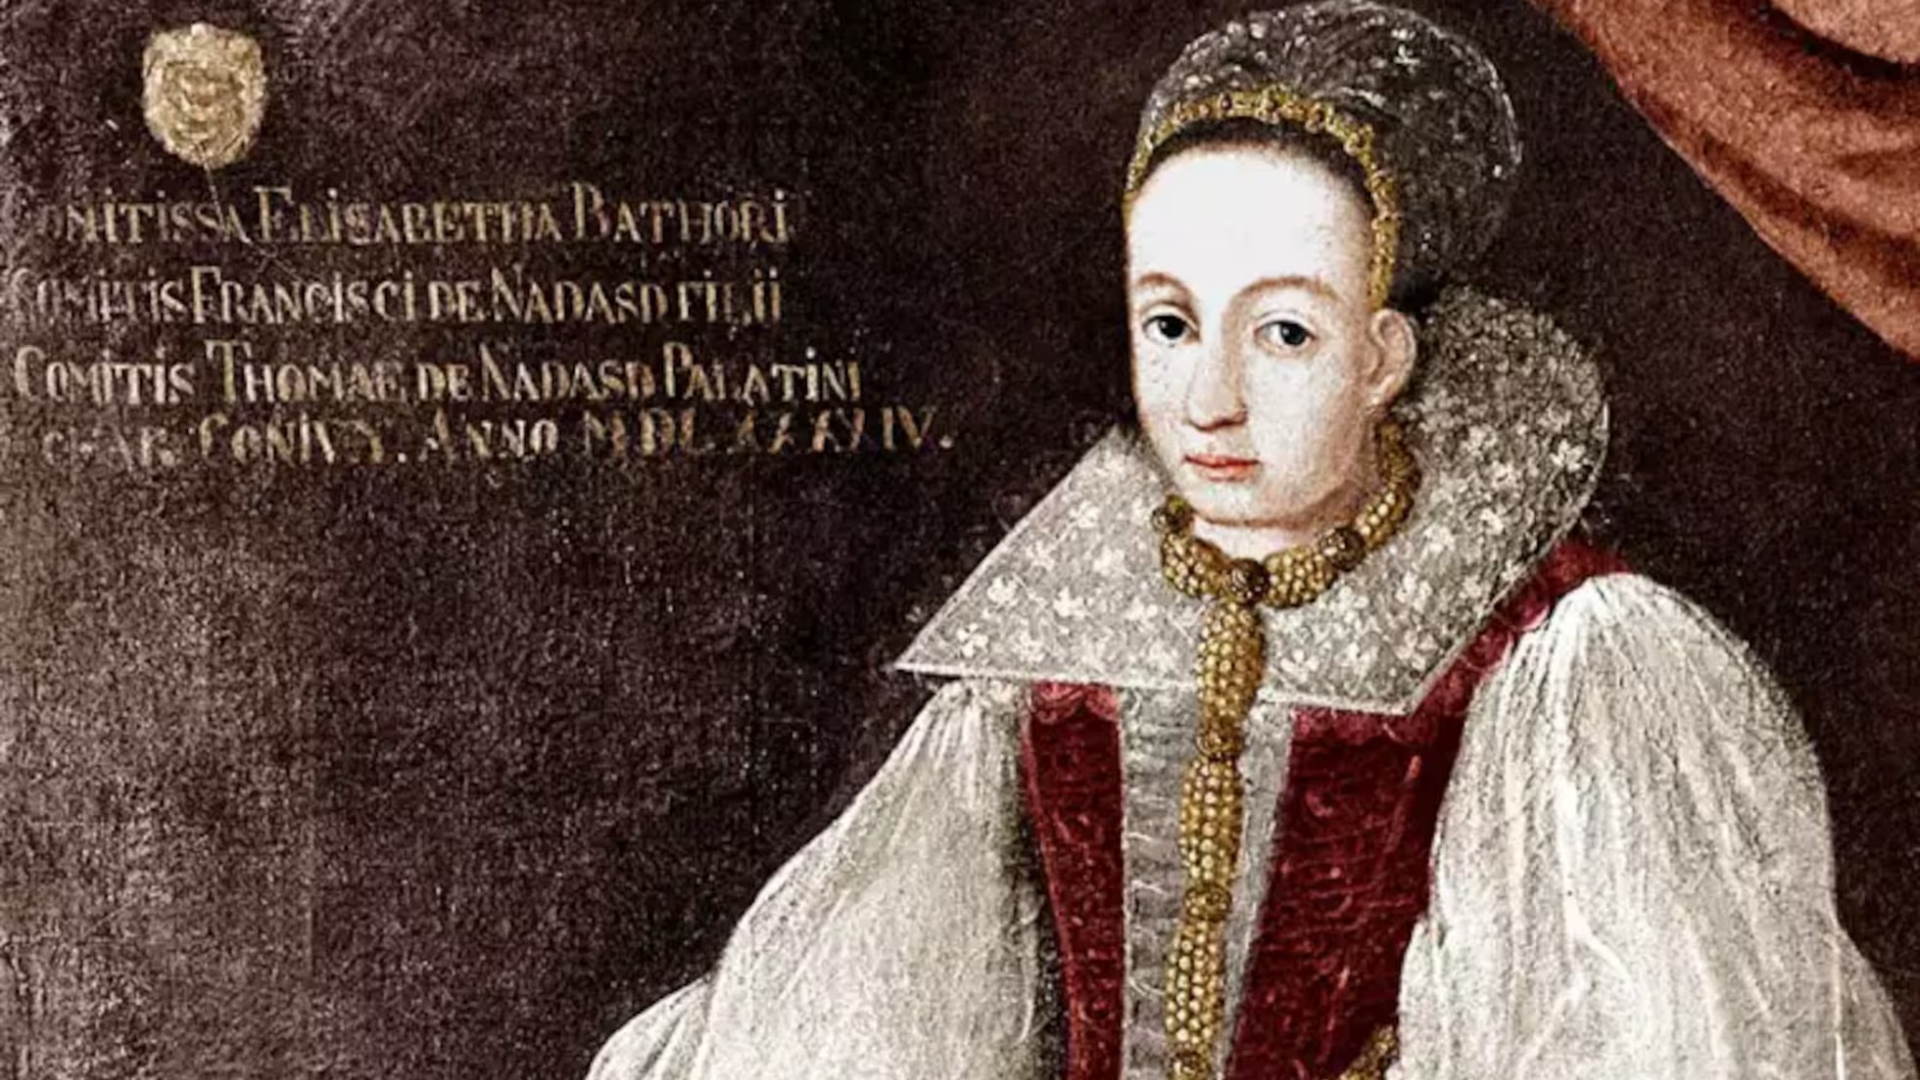 COMITISSA ELISABETHA BATHORI
COMITIS FRANCISCI DE NADASD FILII
COMITIS THOMAE DE NADASD PALATINI
CONIVX. ANNO MDLXXXXIV.